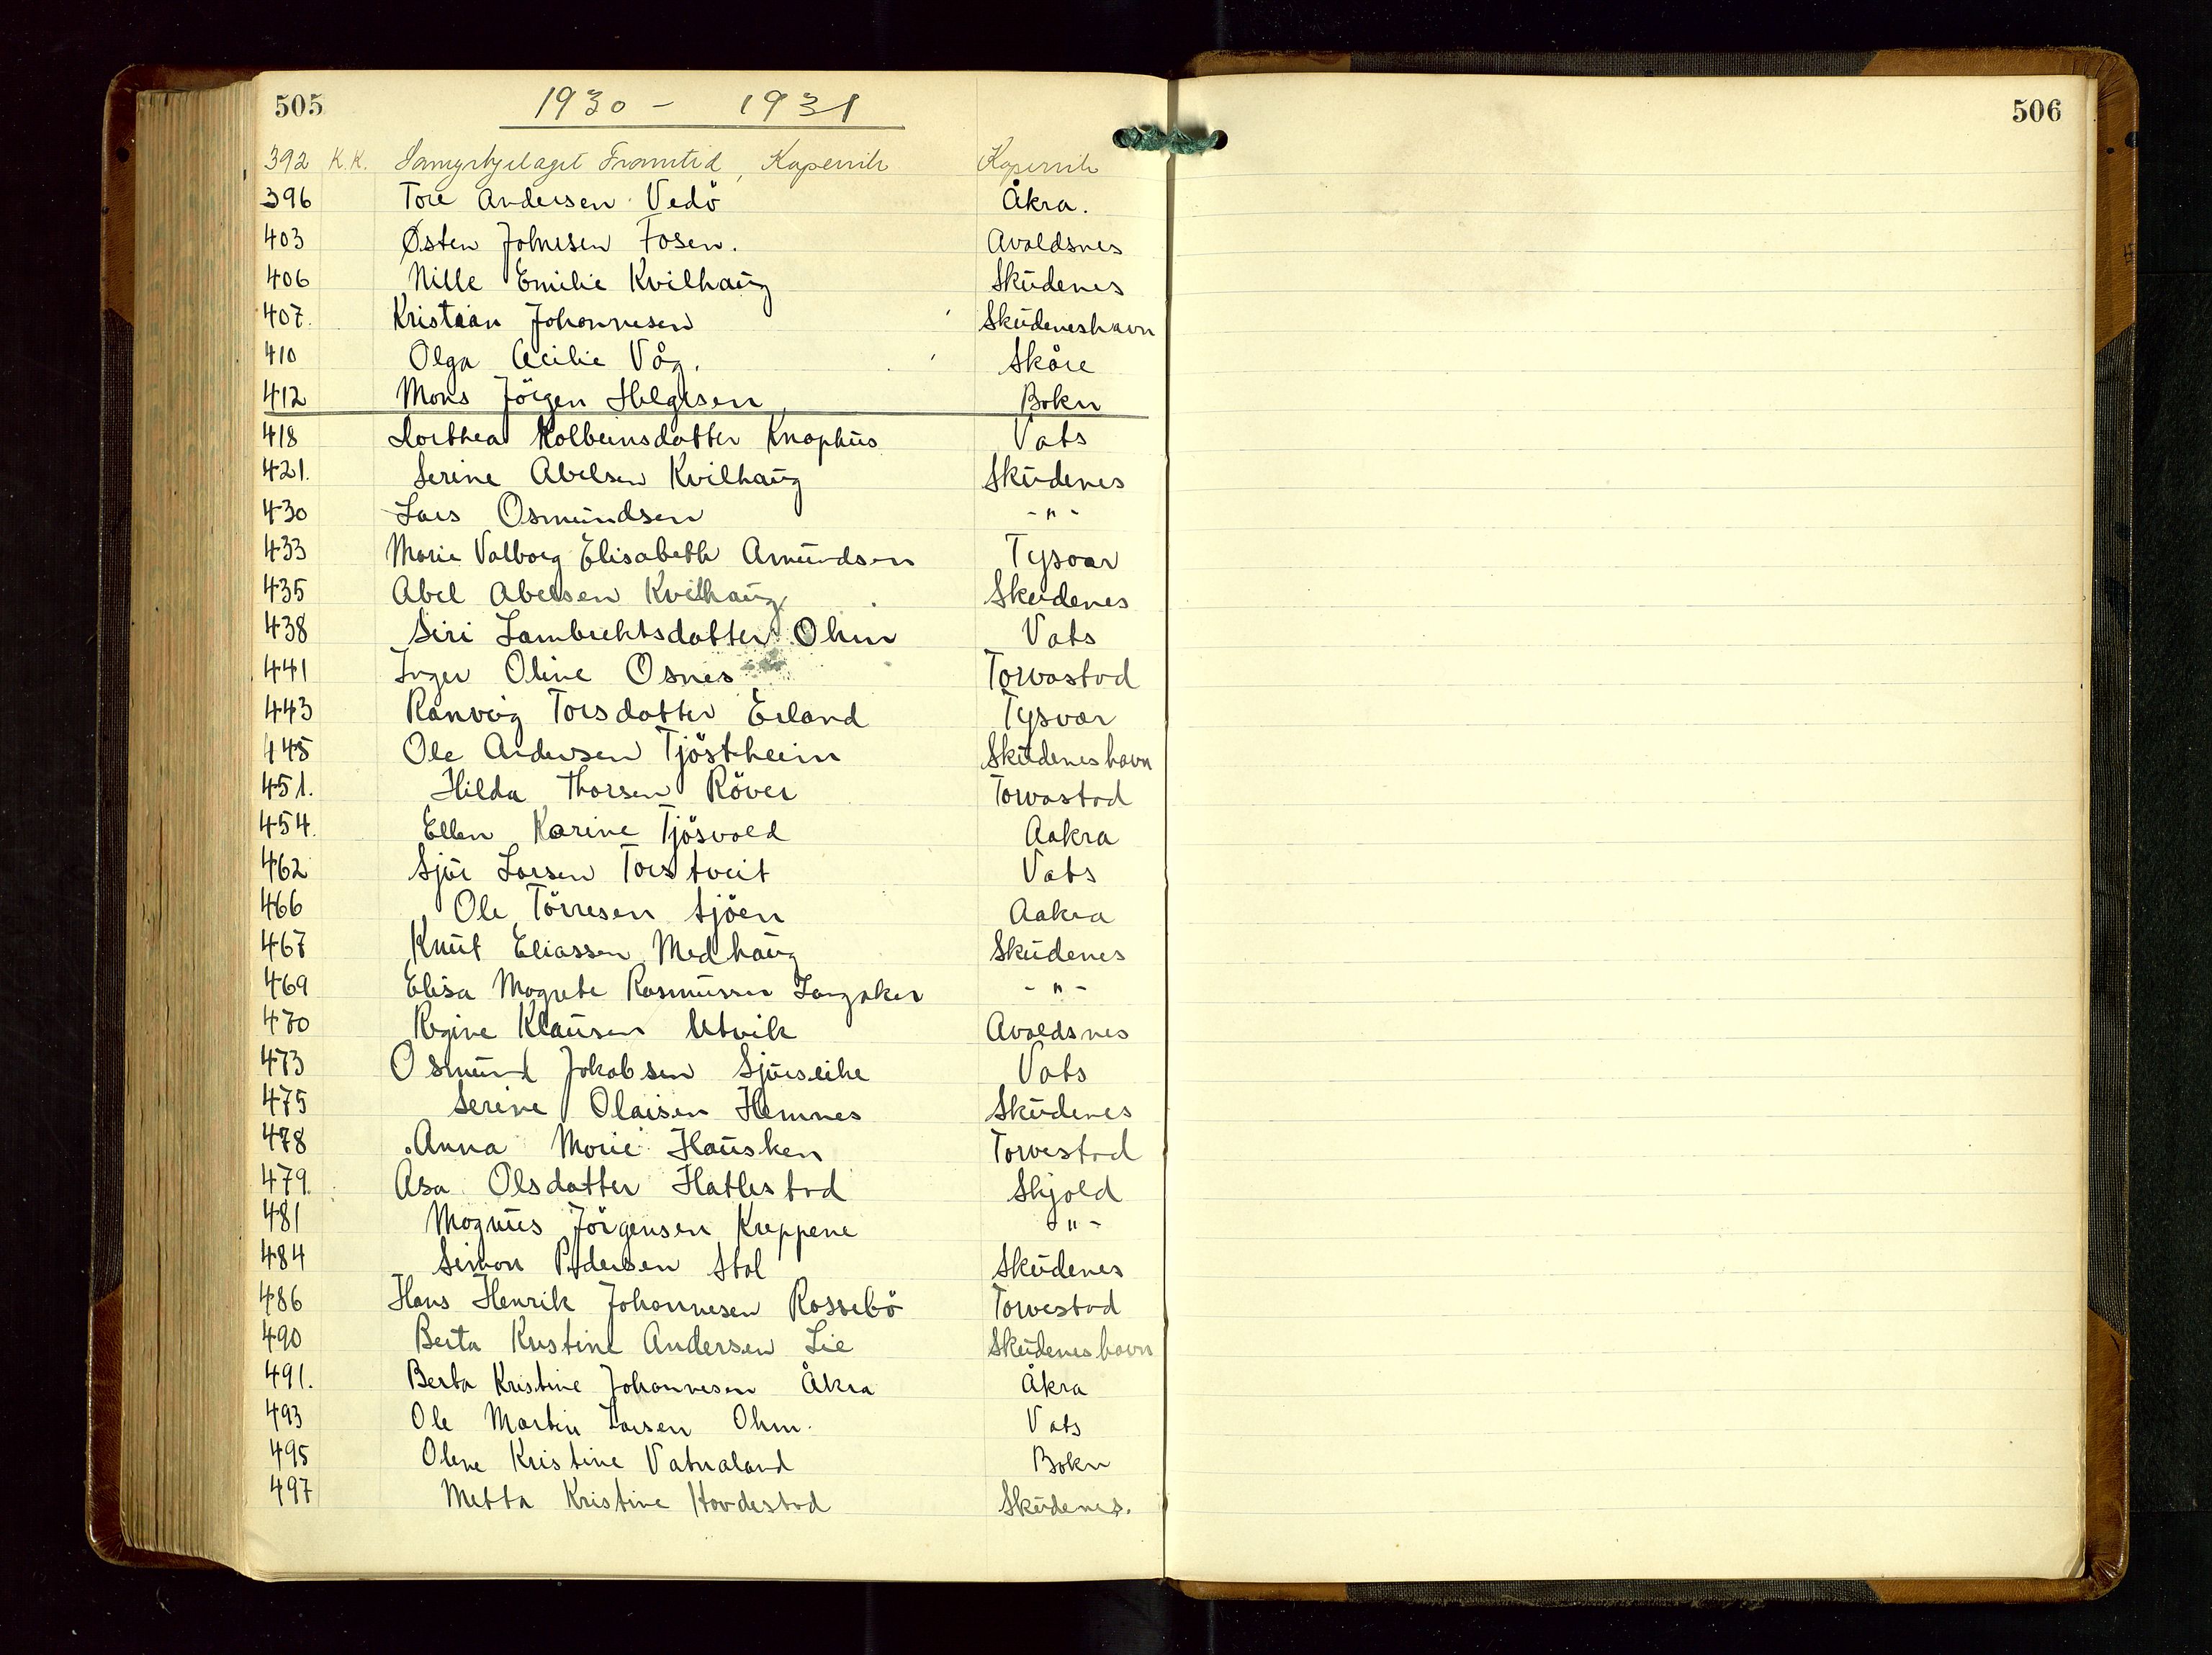 505
1930 - 1931
392 K.K. Samyrkjelaget Framtid, Kopervik Kopervik
396 Tore Andersen Vedö Åkra.
403 Østen Johnsen Fosen. Avaldsnes
406 Nille Emilie Kvilhaug Skudenes
407. Kristian Johannesen Skudeneshavn
410 Olga Cecilie Våg. Skåre
412 Mons Jörgen Helgesen Bokn
418 Dorthea Kolbeinsdatter Knaphus Vats
421. Serine Abelsen Kvilhaug Skudenes
430 Lars Osmundsen - " -
433 Marie Valborg Elisabeth Amundsen Tysvær
435 Abel Abelsen Kvilhaug Skudenes
438 Siri Lambrektsdatter Ohm Vats
441 Inger Oline Osnes Torvastad
443 Ranveig Torsdatter Erland Tysvær
445 Ole Andersen Tjöstheim Skudeneshavn
451. Hilda Thorsen Röver Torvastad
454. Ellen Karine Tjösvold Aakra
462 Sjur Larsen Torstveit Vats
466 Ole Törresen Sjöen Aakra
467 Knut Eliassen Medhaug Skudenes
469 Elisa Magrete Rasmussen Langåker - " -
470 Regine Klausen Utvik Avaldsnes
473 Osmund Jakobsen Sjurseike Vats
475 Serine Olaisen Hemnes Skudenes
478 Anna Marie Hausken Torvestad
479. Åsa Olsdatter Hatlestad Skjold
481 Magnus Jörgensen Kreppene - " -
484 Simon Pedersen Stol Skudenes
486 Hans Henrik Johannesen Rossebö Torvestad
490 Berta Kristine Andersen Lie Skudeneshavn
491. Berta Kristine Johannesen Åkra Åkra
493 Ole Martin Larsen Ohm. Vats
495 Olene Kristine Vatnaland Bokn
497 Metta Kristine Hovdestad Skudenes.
506